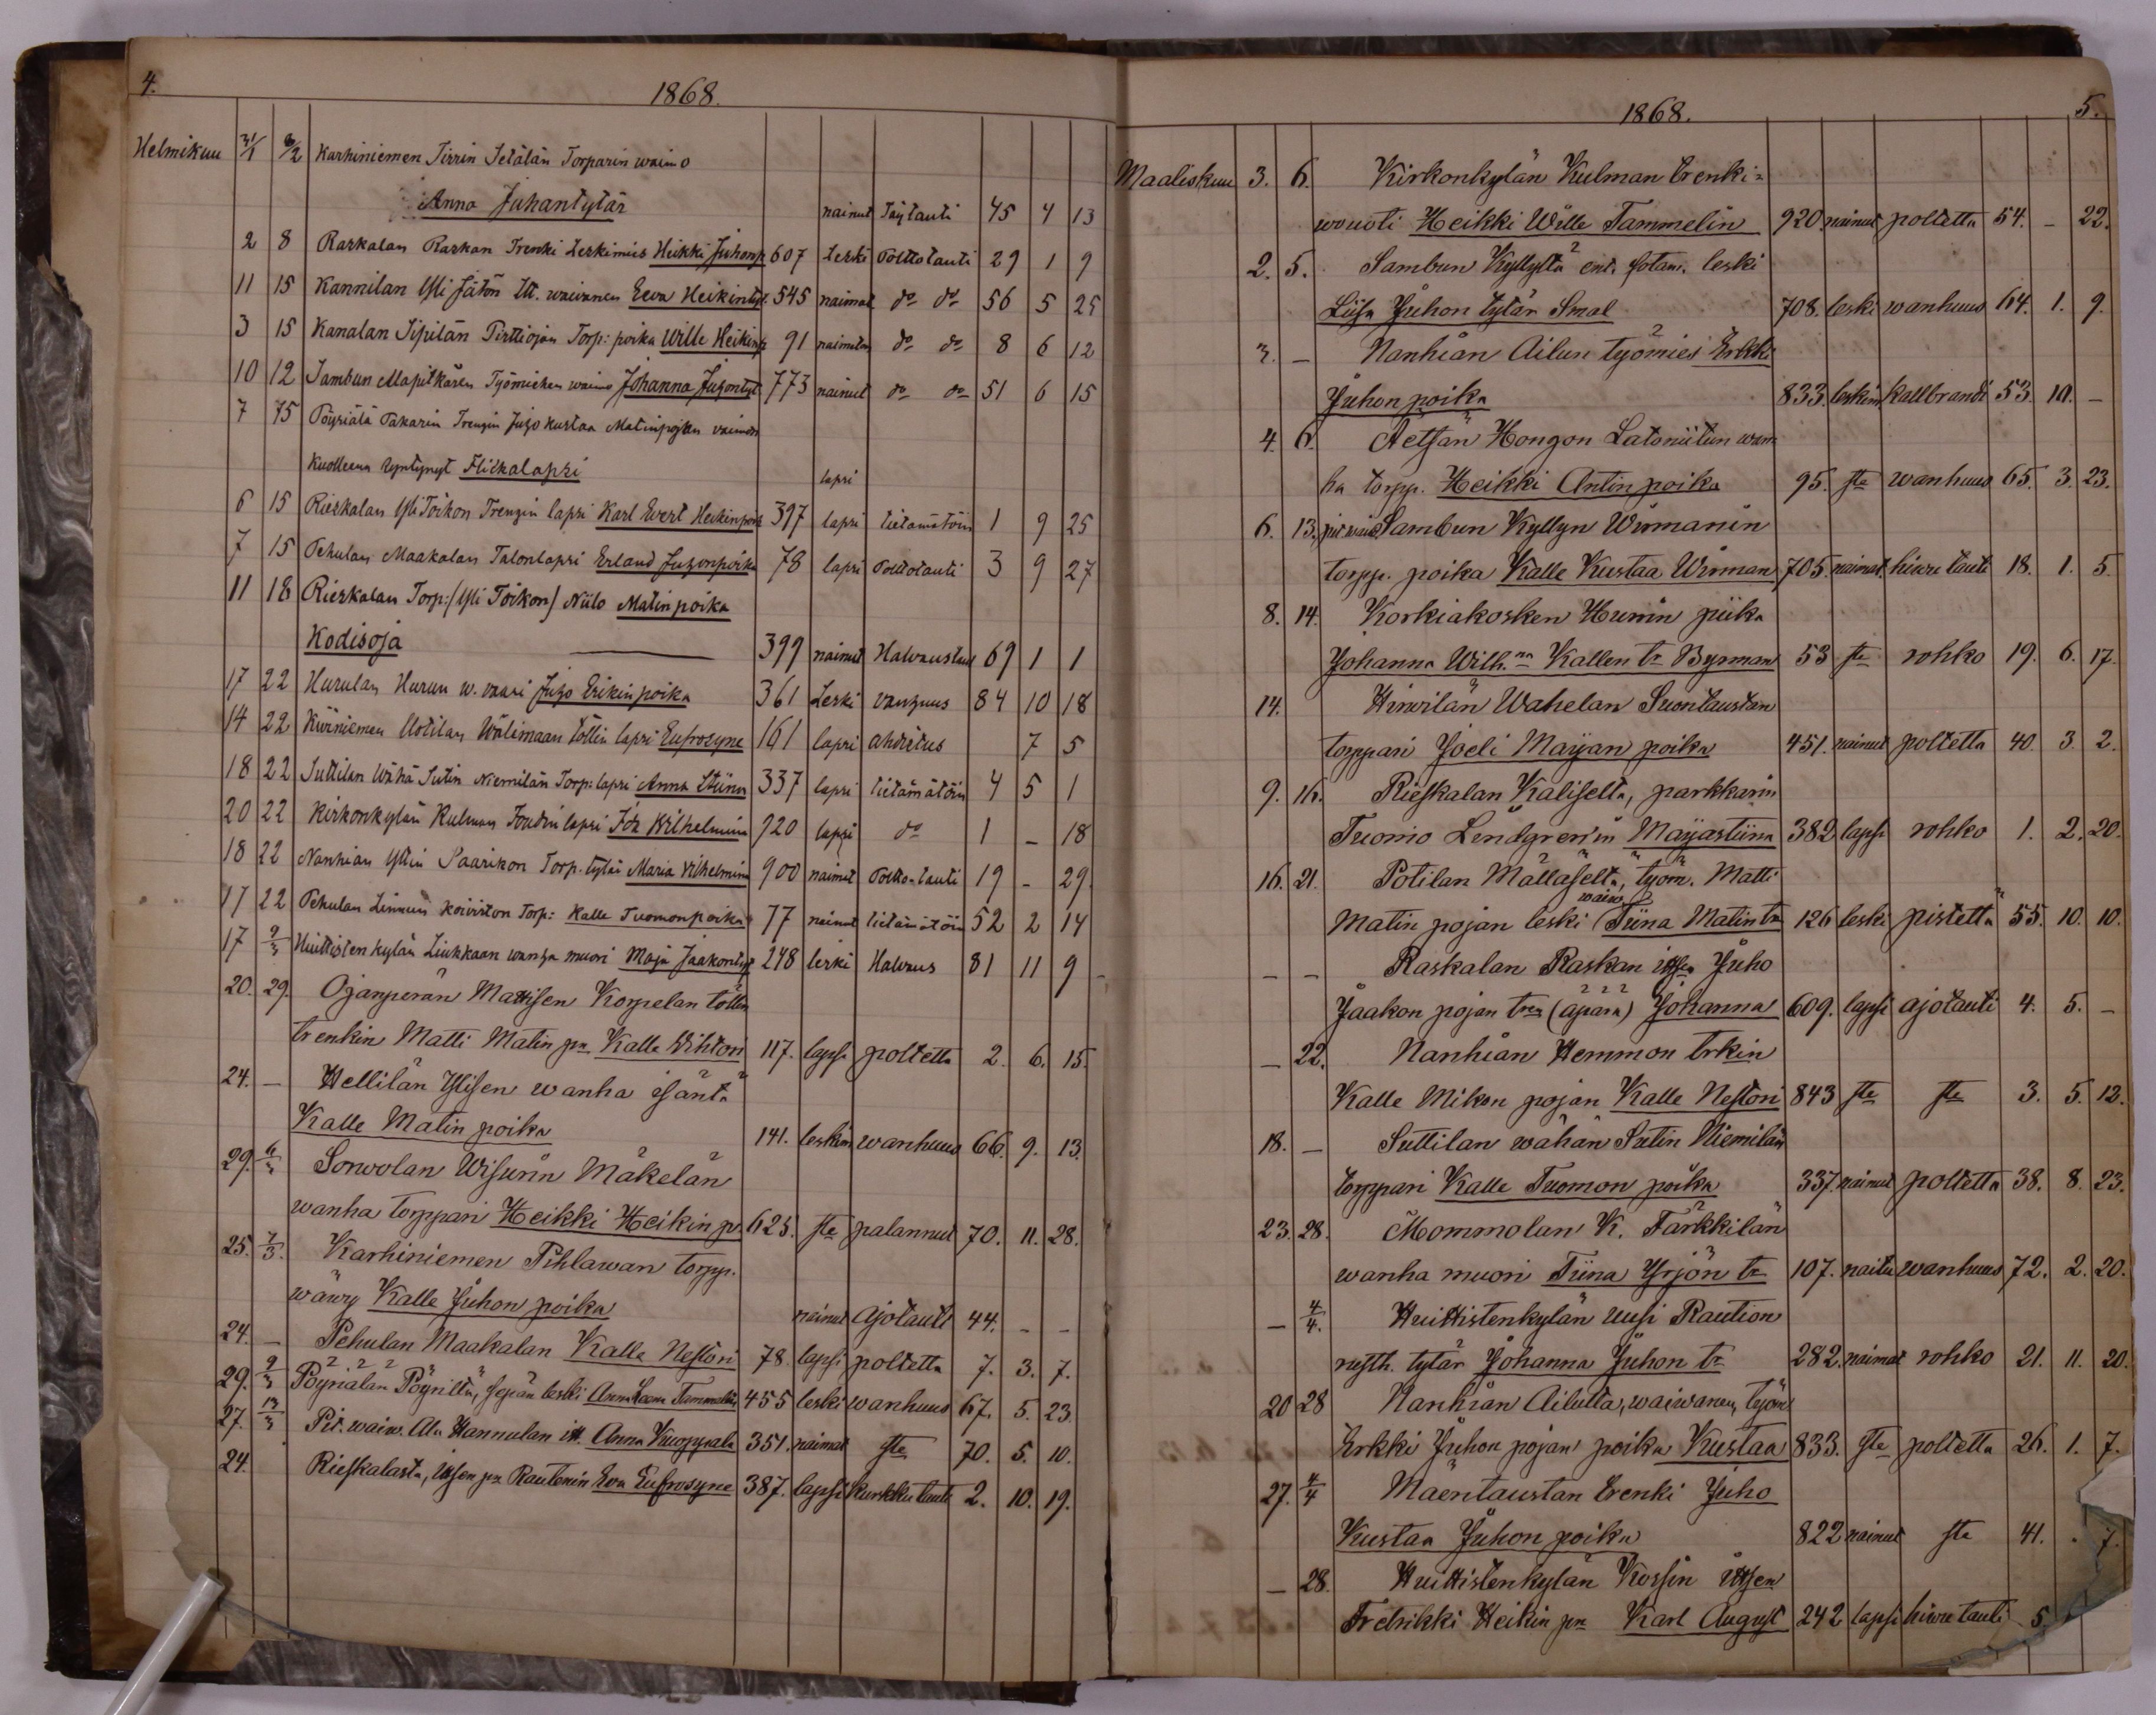 4.
1868.
Helmikuu 31/1 8/2 Karhiniemen Tirrin Jetälän Torparin waimo
Anna Juhantytär nainut Täytauti 45 4 13
2 8 Raskalan Raskan Trenki Leskimies Heikki Juhonp 607 Leski Polttotauti 29 1 9
11 15 Kannilan Yli Jätön Itt. waivanen Eeva Heikintyt. 545 naimat do do 56 5 25
3 15 Kanalan Sipilän Pirttiojan Torp: poika Wille Heikinp 91 naimaton do do 8 6 12
10 12 Sambun Mapitkären Työmiehen waimo Johanna Juhontyt 773 nainut do do 51 6 15
7 15 Pöyriälä Pakarin Trengin Juho Kustaa Matinpojan vaimon
Kuolleena Syntynyt Flickalapsi lapsi
6 15 Rieskalan Yli Töikon Trengin lapsi Karl Evert Heikinpoik 397 lapsi tietämätöin 1 9 25
7 15 Pehulan Maakalan Talonlapsi Erland Juhonpoika 78 lapsi Polttotauti 3 9 27
11 18 Rieskalan Torp:/Yli Töikon/ Niilo Matinpoika
Kodisoja 399 nainut Halvaustaut 69 1 1
17 22 Hurulan Hurun w. vaari Juho Erikinpoika 361 Leski vanhuus 84 10 18
14 22 Kiviniemen Uotilan Wälimaan töllin lapsi Eufrosyne 161 lapsi ahdistus 7 5
18 22 Suttilan Wähä Sutin Niemilän Torp: lapsi Anna Stiina 337 lapsi tietämätöin 4 5 1
20 22 Kirkonkylän Kulman Foudin lapsi Ida Wilhelmiin 920 lapsi do 1 – 18
18 22 Nanhian Yllin Saarikon Torp. tytär Maria Vilhelmina 900 naimat Poltto-tauti 19 – 29.
17 22 Pehulan Linnun Koiviston Torp: Kalle Tuomonpoika 77 nainut tietämätöin 52 2 14
17 2/3 Huittisten kylän Liukkaan wanha muori Maja Jaakontyt 248 leski Halvaus 81 11 9
20. 29. Ojanperän Mattisen Korpelan töllin
trenkin Matti Matin pn. Kalle Wihtori 117. lapsi poltetta 2. 6. 15.
24. – Hellilän Ylisen wanha isäntä
Kalle Matin poika 141. leskim wanhuus 66. 9. 13.
29. 6/3 Sorwolan Wisurin Mäkelän
wanha torppari Heikki Heikin p. 625. ste palannut 70. 11. 28.
25. 7/3. Karhiniemen Pihlawan torpp.
wäwy Kalle Juhon poika nainut ajotauti 44. – –
24. – Pehulan Maakalan Kalle Nestori 78. lapsi poltetta 7. 3. 7.
29. 9/3 Pöyriälän Pöyriltä, sepän leski Anna Leena Tammelin 455 leski wanhuus 67. 5. 23.
27. 13/3 Pit. waiw. Ala Hannulan itt. Anna Kuoppala 351. naimat ste 70. 5. 10.
24. Rieskalasta, itsen pn Rautenin Eva Eufrosyne 387. lapsi kurkku tauti 2. 10. 19.
1868. 5.
Maaliskuu 3. 6. Kirkonkylän Kulman trenki-
wouti Heikki Wille Tammelin 920 nainut poltetta 54. – 22.
2. 5. Sambun Kyllyltä ent. sotam. leski
Liisa Juhon tytär Smal 708. leski wanhuus 64. 1. 9.
3. – Nanhian Ailun työmies Erkki
Juhon poika 833. leskim. kallbrandi 53. 10. –
4. 6. Äetsän Hongon Latoniitun wan-
ha torpp. Heikki Antin poika 95. ste wanhuus 65. 3. 23.
6. 13. Sambun Kyllyn Wirmanin
torpp. poika Kalle Kustaa Wirman 705. naimat. hiwu tauti 18. 1. 5.
8. 14. Korkiakosken Hurrin piika
Johanna Wilh.na Kallen tr Byrman 53 ste rohko 19. 6. 17.
14. Hirwilän Wahelan Suontaustan
torppari Joeli Maijan poika 451. nainut poltetta 40. 3. 2.
9. 16. Rieskalan Kaliselta, parkkarin
Tuomo Lendgrenin Maijastiina 382 lapsi rohko 1. 2. 20.
16. 21. Potilan Mällaseltä, työm. Matti
waiw.
Matin pojan leski Tiina Matin tr 126 leski pistettä 55. 10. 10.
– – Raskalan Raskan itsen Juho
Jaakon pojan tren (äpärä) Johanna 609. lapsi ajotauti 4. 5. –
– 22. Nanhian Hemmon trkin
Kalle Mikon pojan Kalle Nestori 843 ste ste 3. 5. 12.
18. – Suttilan wähän Sutin Niemilän
torppari Kalle Tuomon poika 337. nainut poltetta 38. 8. 23.
23. 28. Mommolan K. Tarkkilan
wanha muori Tiina Yrjön tr 107. naitu wanhuus 72. 2. 20.
– 4/4. Huittistenkylän uusi Raution
rusth. tytär Johanna Juhon tr 282. naimat rohko 21. 11. 20.
20 28 Nanhian Ailulta, waiwanen, työm
Erkki Juhon pojan poika Kustaa 833. ste poltetta 26. 1. 7.
27. 4/4 Mäentaustan trenki Juho
Kustaa Juhon poika 822 nainut ste 41. . 7.
– 28. Huittistenkylän Korsin itsen
Fredrikki Heikin pn Karl August 242 lapsi hiwu tauti 5.